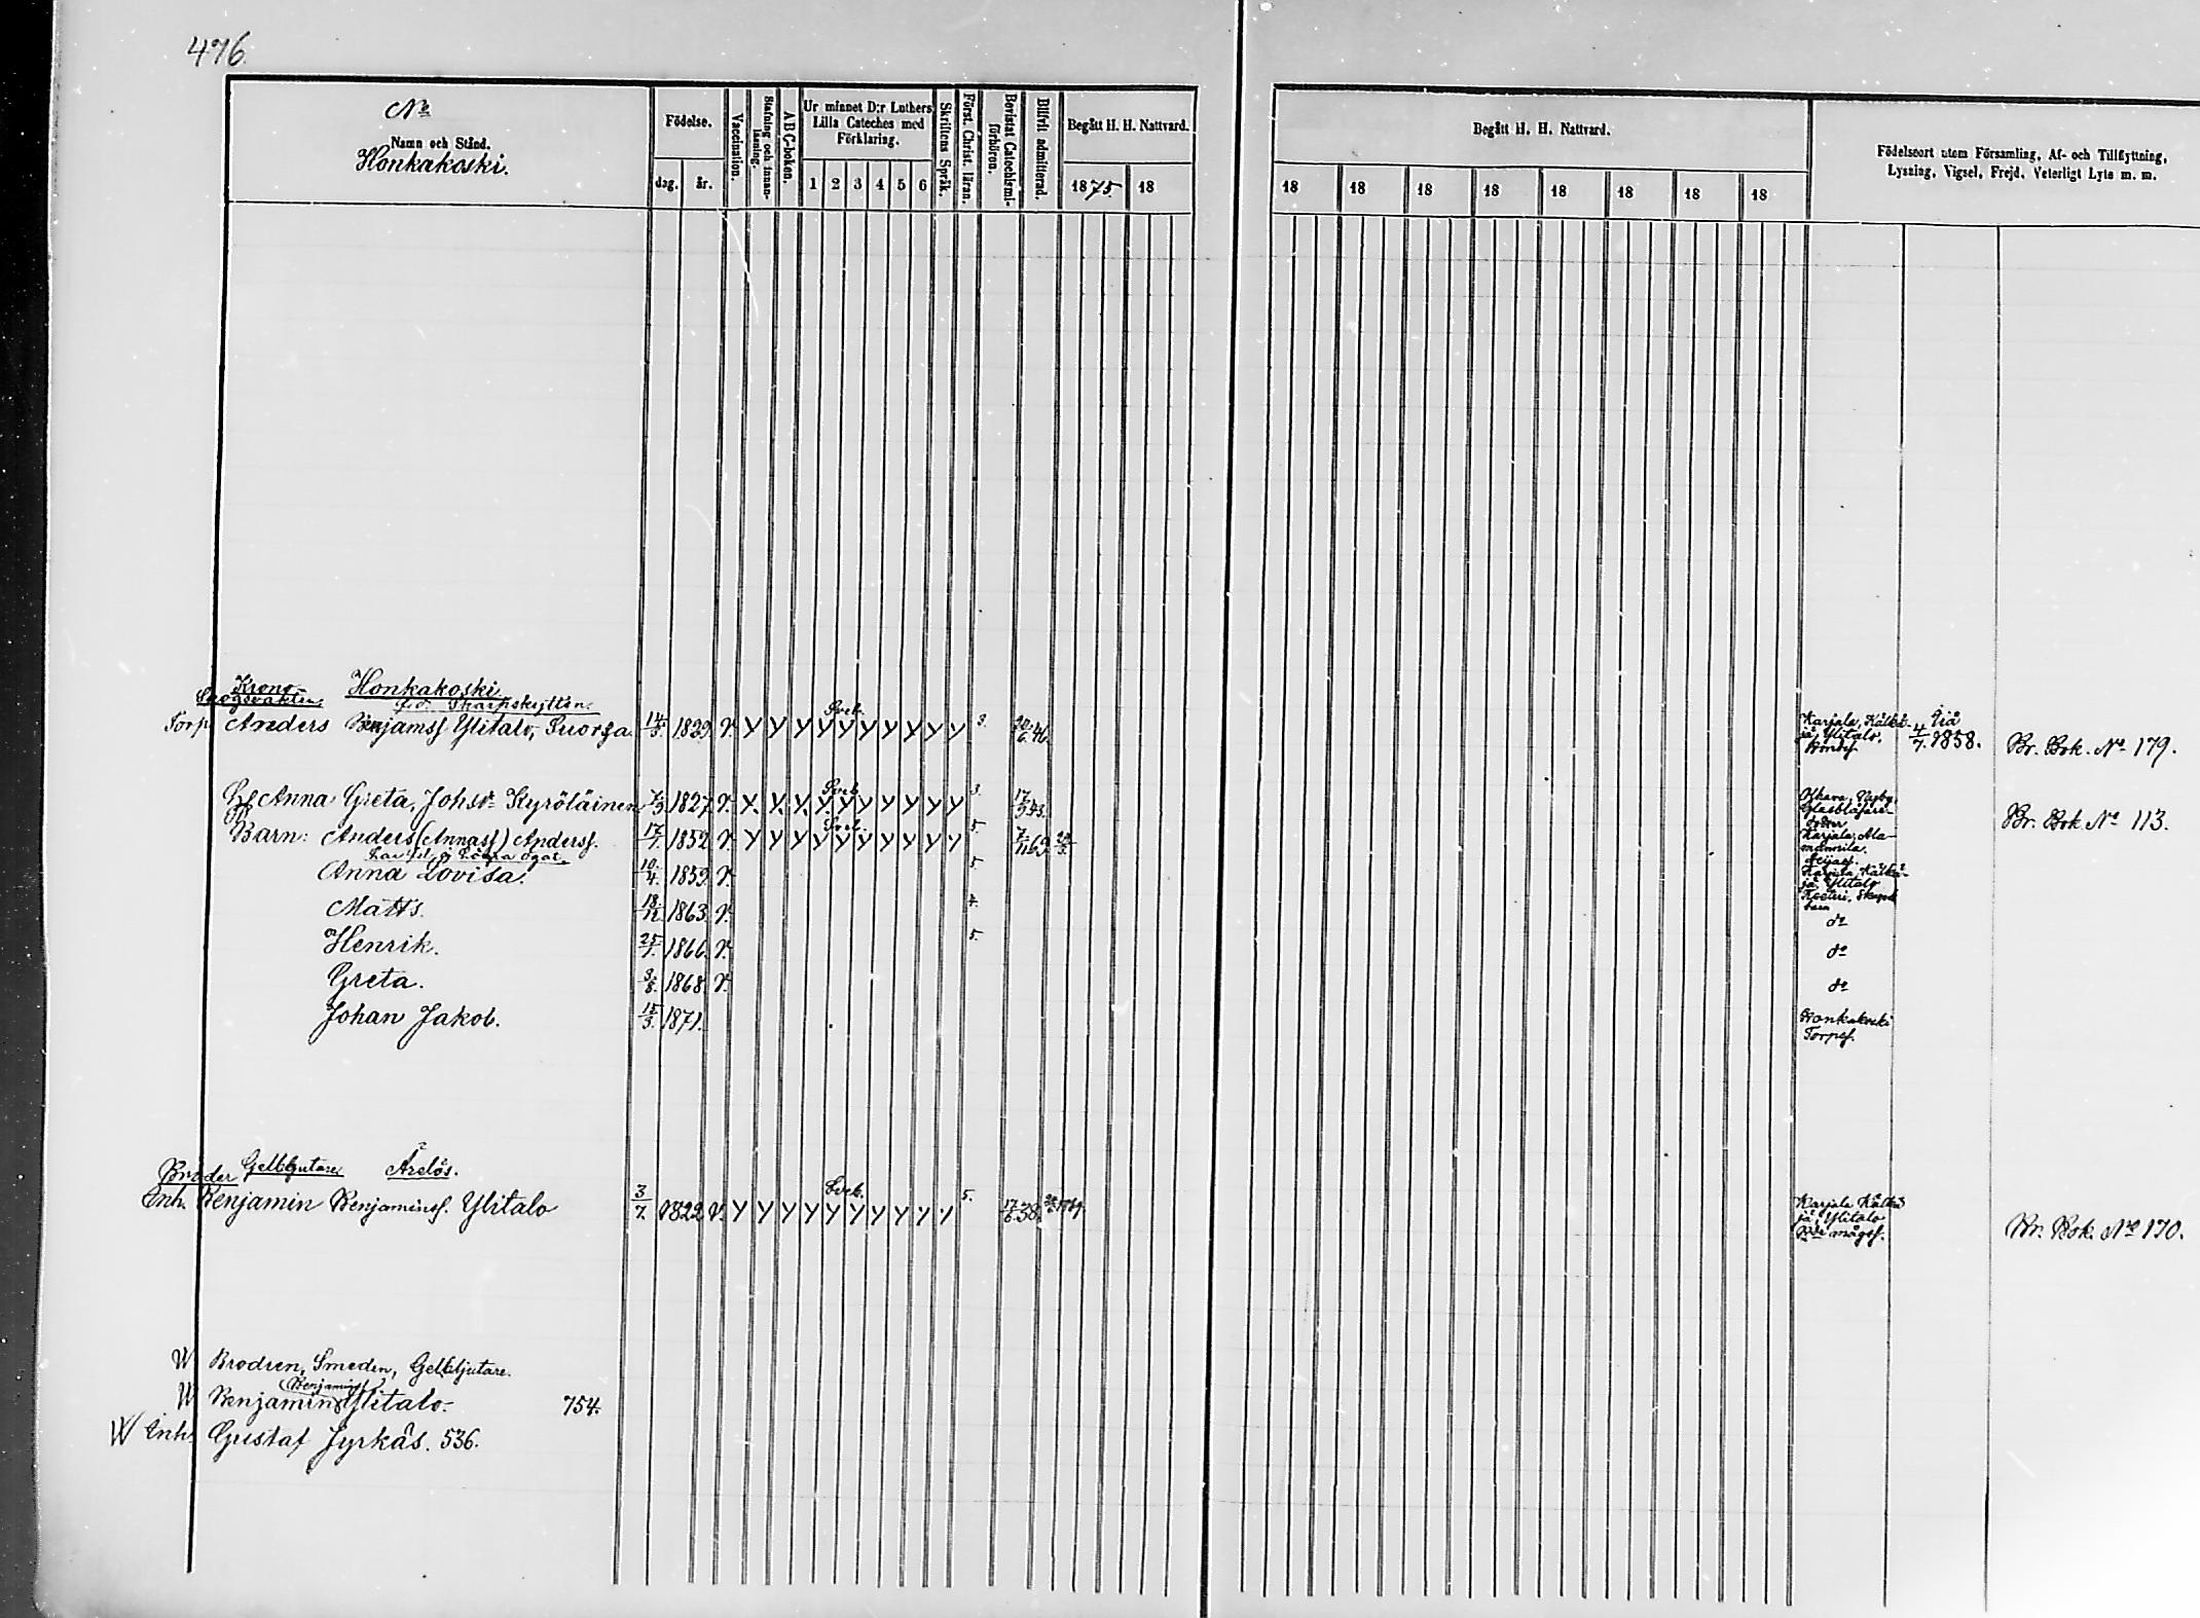 476.
No
Namn och Stånd.
Honkakoski.
Födelse.
dag. år.
Vaccination.
Stafning och innanläsning.
A B C-boken.
Ur minnet D:r Luthers Lilla Cateches med Förklaring.
1 2 3 4 5 6
Skriftens Språk.
Först. Christ. läran.
Bevistat Catechismi-förhören.
Blifvit admitterad.
Begått H. H. Nattvard.
1875. 18
Begått H. H. Nattvard.
18 18 18 18 18 18 18 18
Födelseort utom Församling, Af- och Tillflyttning,
Lysning, Vigsel, Frejd, Veterligt Lyte m. m.
Krono-
Skogsvakten Honkakoski
f.d. Skarpskytten.
Torp. Anders Benjamss Ylitalo, Suorsa 14/3. 1829. v. y y y y y y y y y y 3. 20/6. 46. Karjala, Kälkä-
jä Ylitalo. Bondes. 4/7. 1858. Br. Bok. No 179.
H Anna Greta, Johsdr Kyröläinen 1827. v. y y y y y y y y y y 3. 17/9 43. Br. Bok No 113.
Barn: Anders (Annass) Anderss. 17/7. 1852 v. y y y y y y y y y y 5. 7/11 69. Karjala, Ala-
mannila.
Anna Lovisa. 10/4. 1859. v. 5. Karjala, Kälkä-
jä, Ylitalo
Matts. 18/12. 1863. v. 4. do
Henrik. 25/1. 1866. v. 5. do
Greta. 3/8. 1868. v. do
Johan Jakob. 15/3. 1871. Honkakoski
Torpes.
Broder Gelbgjutare Ärelös.
Enh. Benjamin Benjamins. Ylitalo 3/7. 1822. v. y y y y y y y y y y 5. 17/6. 38. Karjala Kälkä
jä, Ylitalo
mågs. Br. Bok. No 170.
W Brodren, Smeden, Gelbgjutare.
(Benjamins)
W Benjamin Ylitalo. 754.
W Enh. Gustaf Jyrkäs. 536.